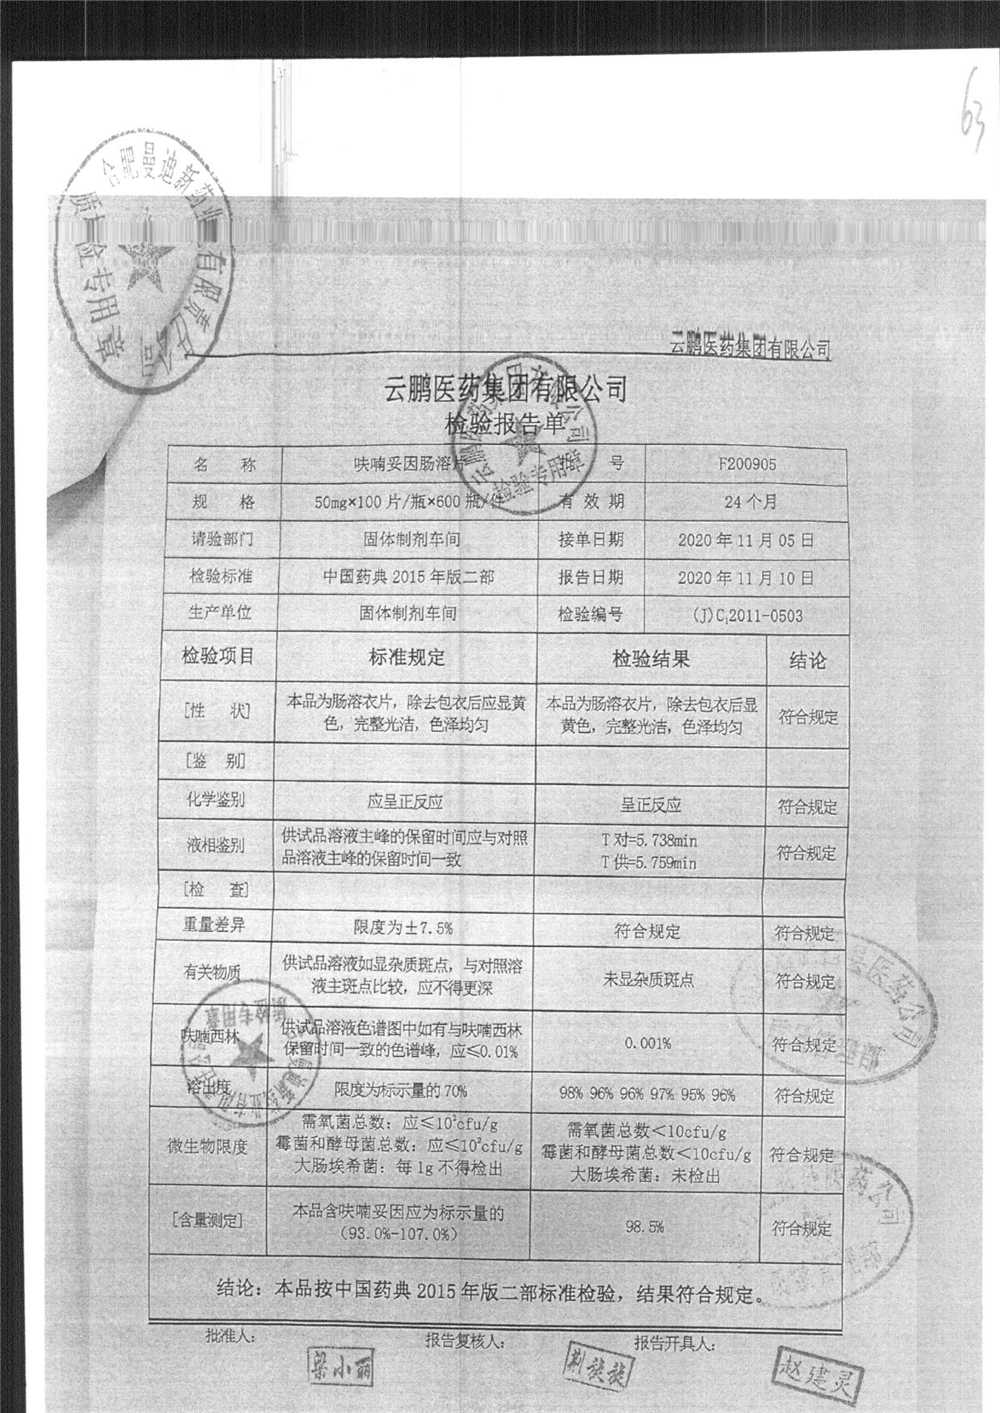 63
合肥曼迪新药业有限责任公司
质量检专用章
云鹏医药集团有限公司
云鹏医药集团有限公司
检验报告单
检验专用章
名 称 呋喃妥因肠溶片 批 号 F200905
规 格 50mg×100片/瓶×600瓶/件 有 效 期 24个月
请验部门 固体制剂车间 接单日期 2020年11月05日
检验标准 中国药典2015年版二部 报告日期 2020年11月10日
生产单位 固体制剂车间 检验编号 (J)C₁2011-0503
检验项目 标准规定 检验结果 结论
[性 状] 本品为肠溶衣片，除去包衣后应显黄色，完整光洁，色泽均匀 本品为肠溶衣片，除去包衣后显黄色，完整光洁，色泽均匀 符合规定
[鉴 别]
化学鉴别 应呈正反应 呈正反应 符合规定
液相鉴别 供试品溶液主峰的保留时间应与对照品溶液主峰的保留时间一致 T对=5.738min T供=5.759min 符合规定
[检 查]
重量差异 限度为±7.5% 符合规定 符合规定
有关物质 供试品溶液如显杂质斑点，与对照溶液主斑点比较，应不得更深 未显杂质斑点 符合规定
呋喃西林 供试品溶液色谱图中如有与呋喃西林保留时间一致的色谱峰，应≤0.01% 0.001% 符合规定
溶出度 限度为标示量的70% 98% 96% 96% 97% 95% 96% 符合规定
微生物限度 需氧菌总数：应≤10²cfu/g 霉菌和酵母菌总数：应≤10²cfu/g 大肠埃希菌：每1g不得检出 需氧菌总数<10cfu/g 霉菌和酵母菌总数<10cfu/g 大肠埃希菌：未检出 符合规定
[含量测定] 本品含呋喃妥因应为标示量的（93.0%-107.0%） 98.5% 符合规定
结论：本品按中国药典2015年版二部标准检验，结果符合规定。
批准人： 报告复核人： 报告开具人：
梁小丽 荆族族 赵建灵